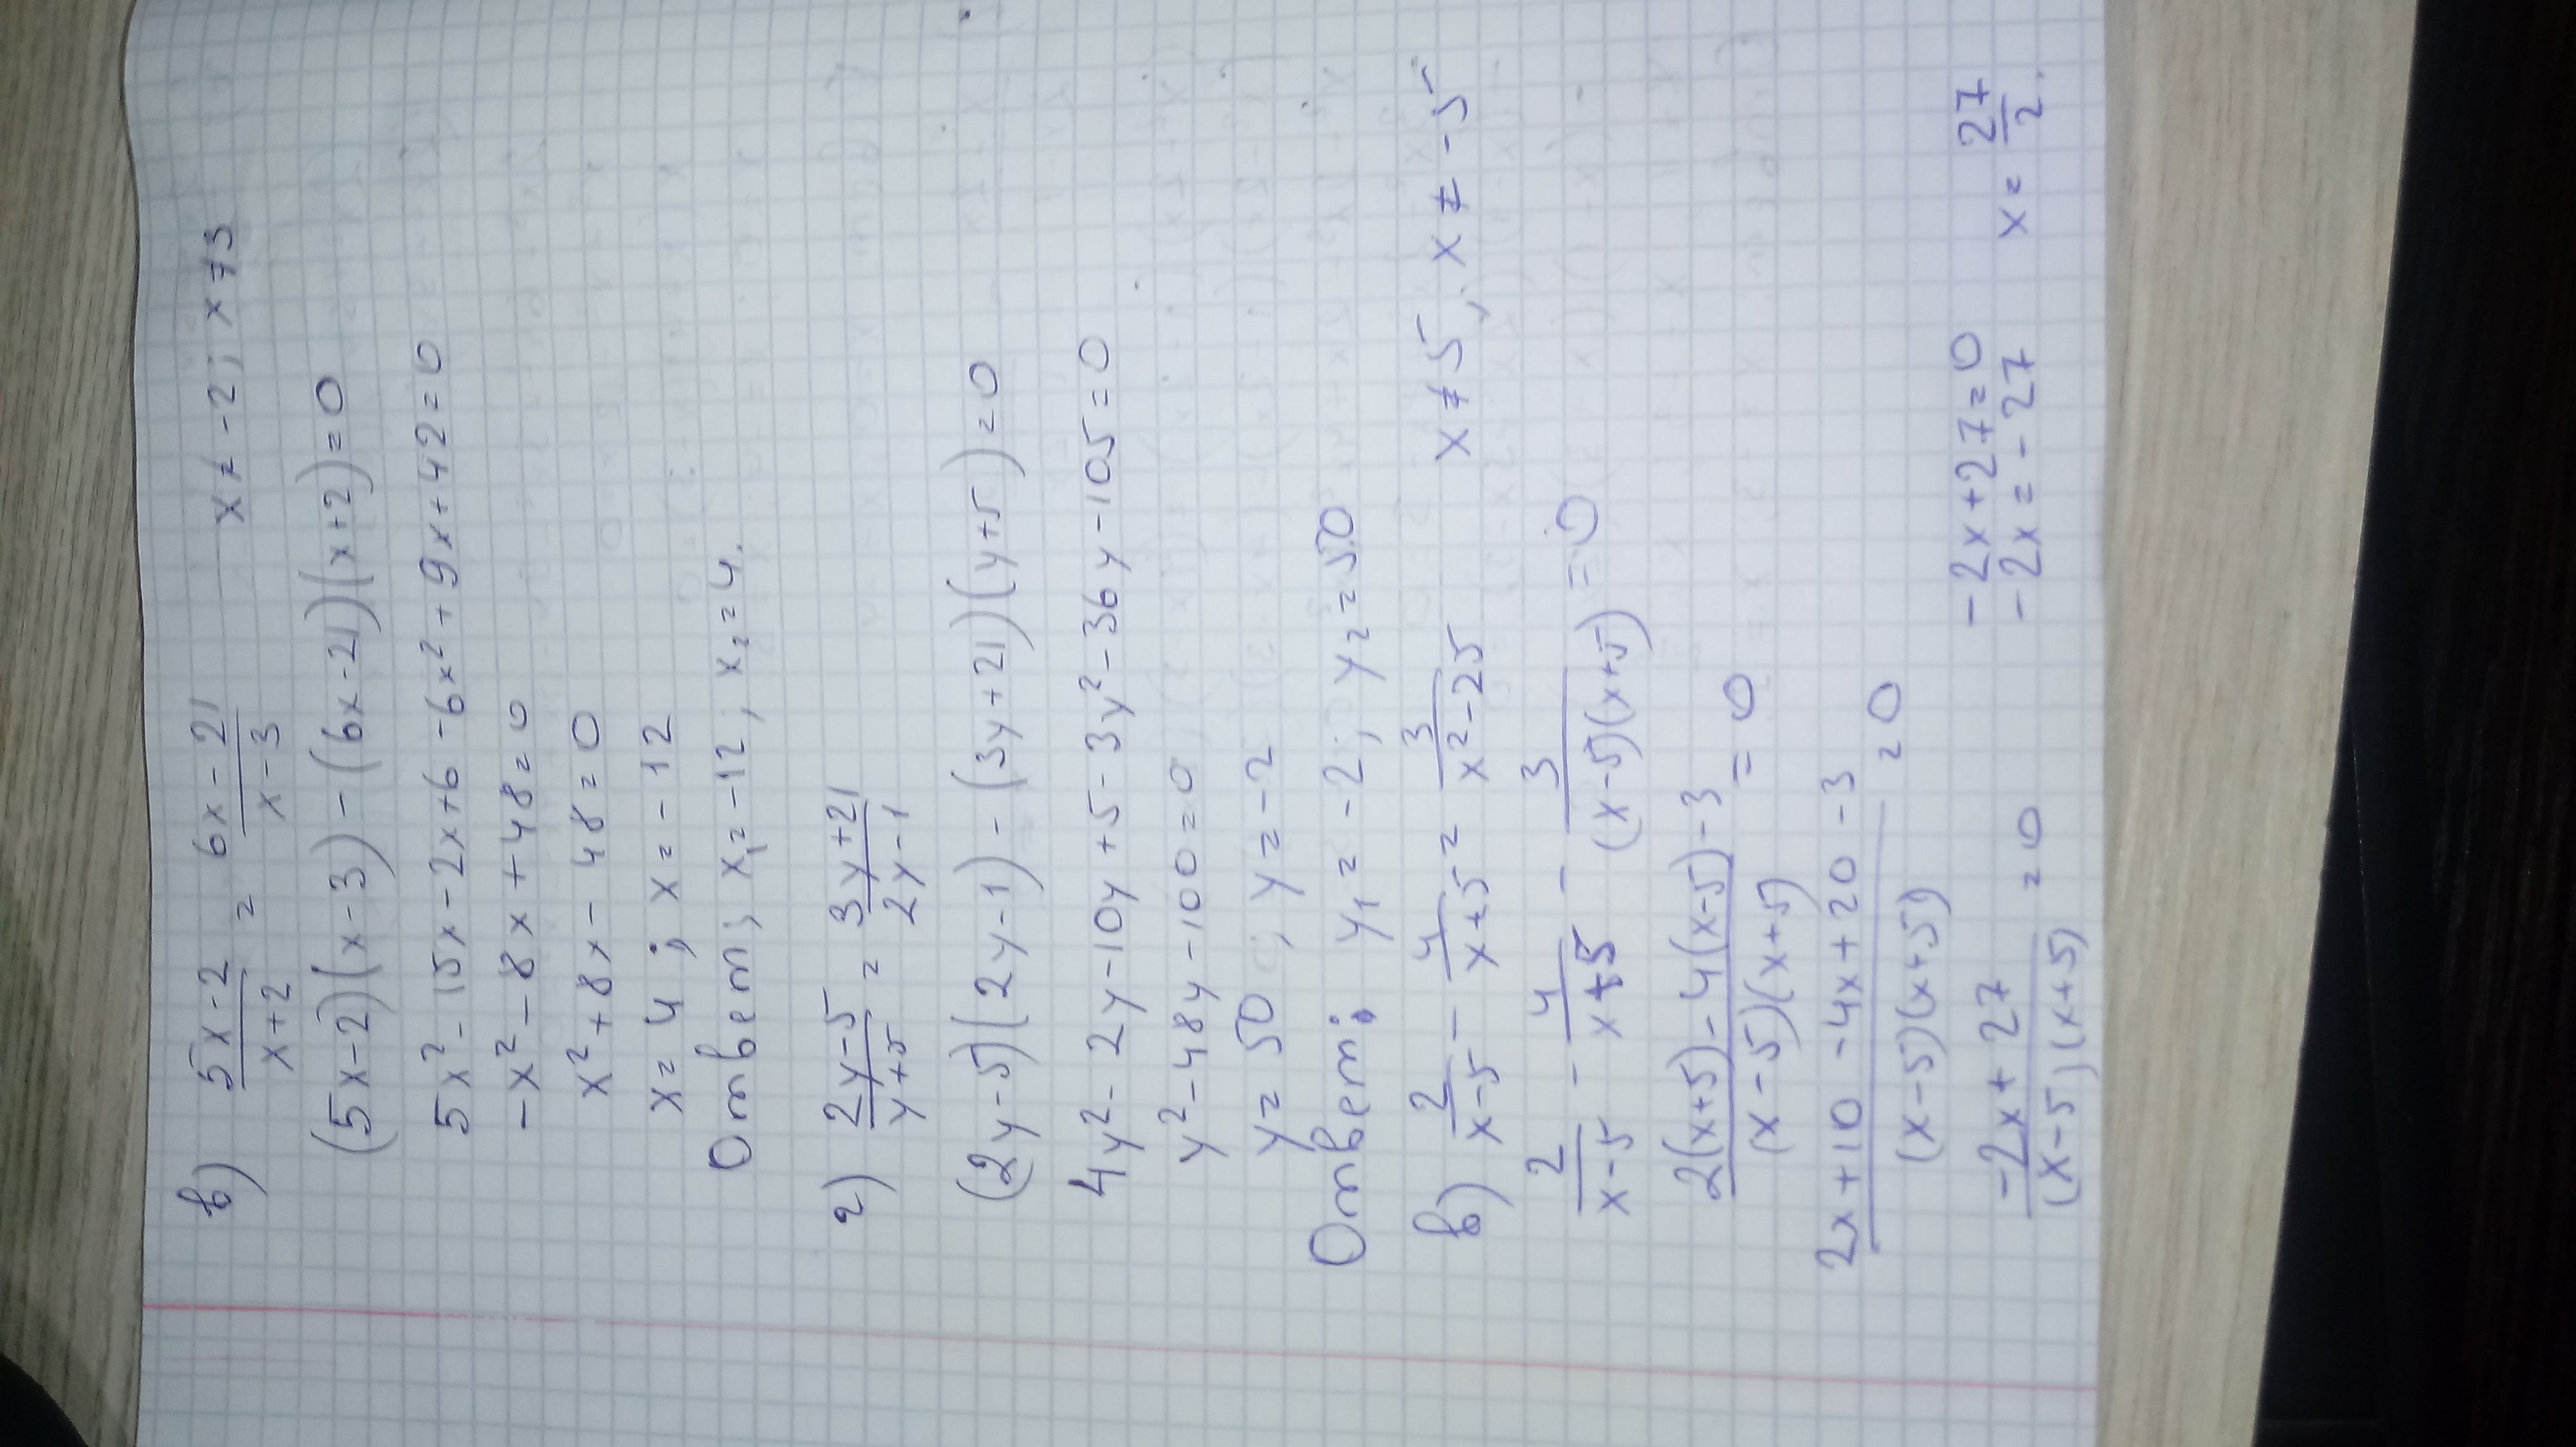 в) (5x-2)/(x+2) = (6x-21)/(x-3)   x ≠ -2; x ≠ 3
(5x-2)(x-3)-(6x-21)(x+2)=0
5x²-15x-2x+6-6x²+9x+42=0
-x²-8x+48=0
x²+8x-48=0
x=4; x=-12
Ответ; x₁=-12; x₂=4.
г) (2y-5)/(y+5) = (3y+21)/(2y-1)
(2y-5)(2y-1)-(3y+21)(y+5)=0
4y²-2y-10y+5-3y²-36y-105=0
y²-48y-100=0
y=50; y=-2
Ответ; y₁=-2; y₂=50
в) 2/(x-5) - 4/(x+5) = 3/(x²-25)   x≠5; x≠-5
2/(x-5) - 4/(x+5) - 3/((x-5)(x+5)) = 0
(2(x+5)-4(x-5)-3)/((x-5)(x+5)) = 0
(2x+10-4x+20-3)/((x-5)(x+5)) = 0
(-2x+27)/((x-5)(x+5)) = 0
-2x+27=0
-2x=-27   x=27/2.